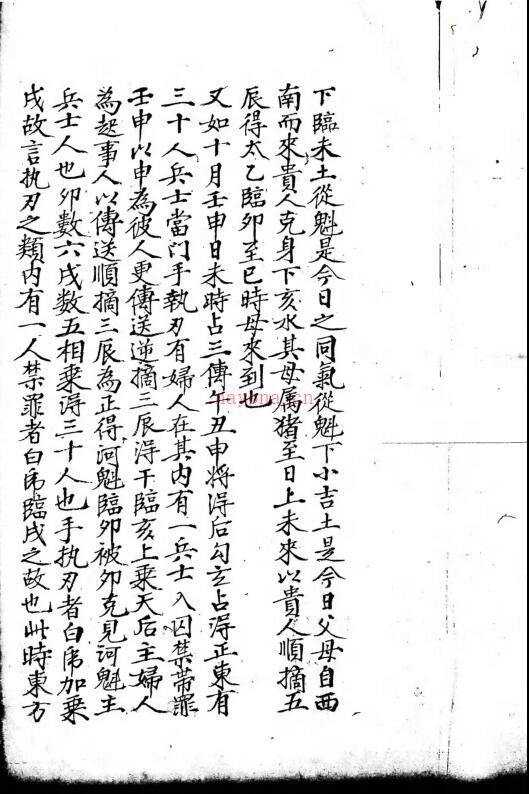 下臨未土從魁是今日之同氣從魁下小吉土是今日父母自西
南而來貴人克身下亥水其母属猪至日上未來以貴人順摘五
辰得太乙臨卯至巳時母來到也
又如十月壬申日未時占三傳午丑申將得后勾玄占得正東有
三十人兵士當门手執刃有婦人在其内有一兵士入囚禁帯罪
壬申以申為彼人更傳送逆摘三辰得午臨亥上乗天后主婦人
為起事人以傳送順摘三辰為正得河魁臨卯被卯克見河魁主
兵士人也卯數六戌数五相乗得三十人也手执刃者白虎加乗
戌故言执刃之類内有一人禁罪者白虎臨戌之故也此時東方